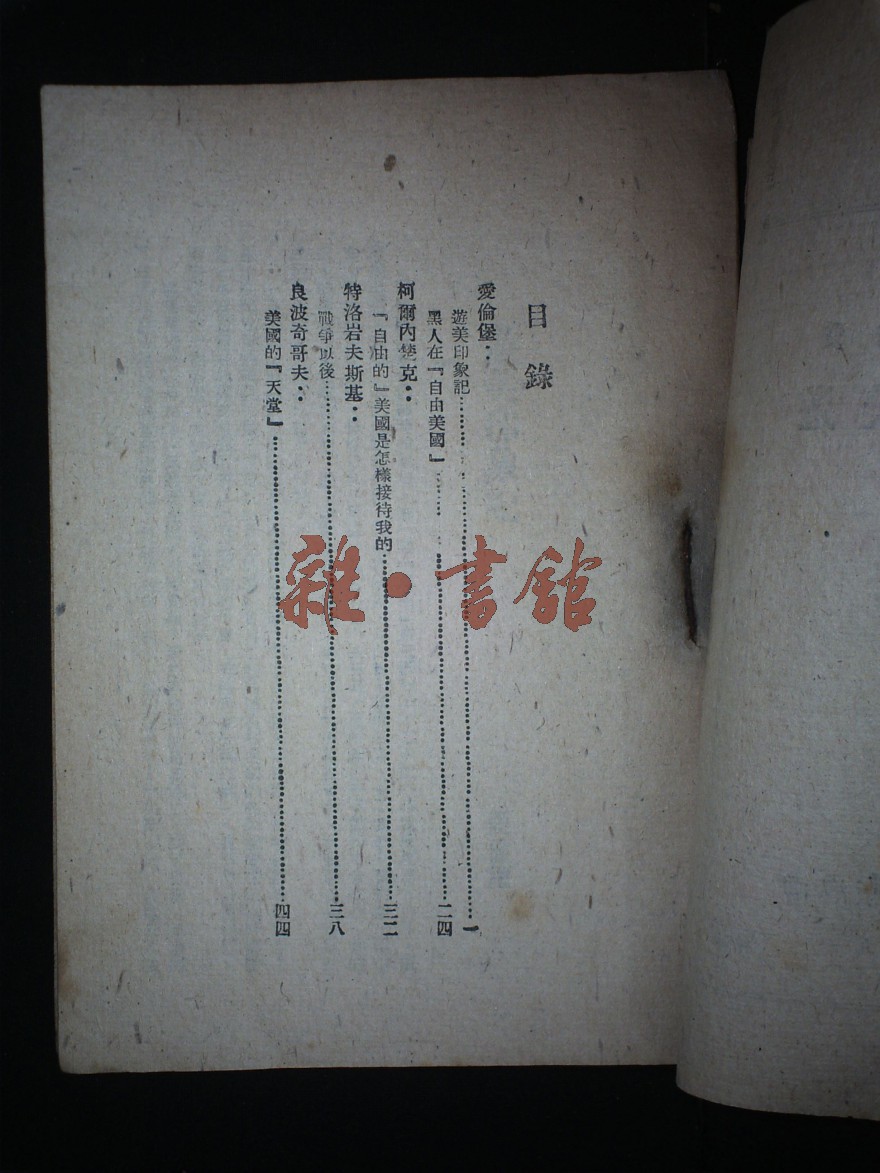 目錄
愛倫堡：
遊美印象記……一
黑人在『自由美國』……二四
柯爾內楚克：
『自由的』美國是怎樣接待我的……三二
特洛岩夫斯基：
戰爭以後……三八
良波奇哥夫：
美國的『天堂』……四四
雜·書館